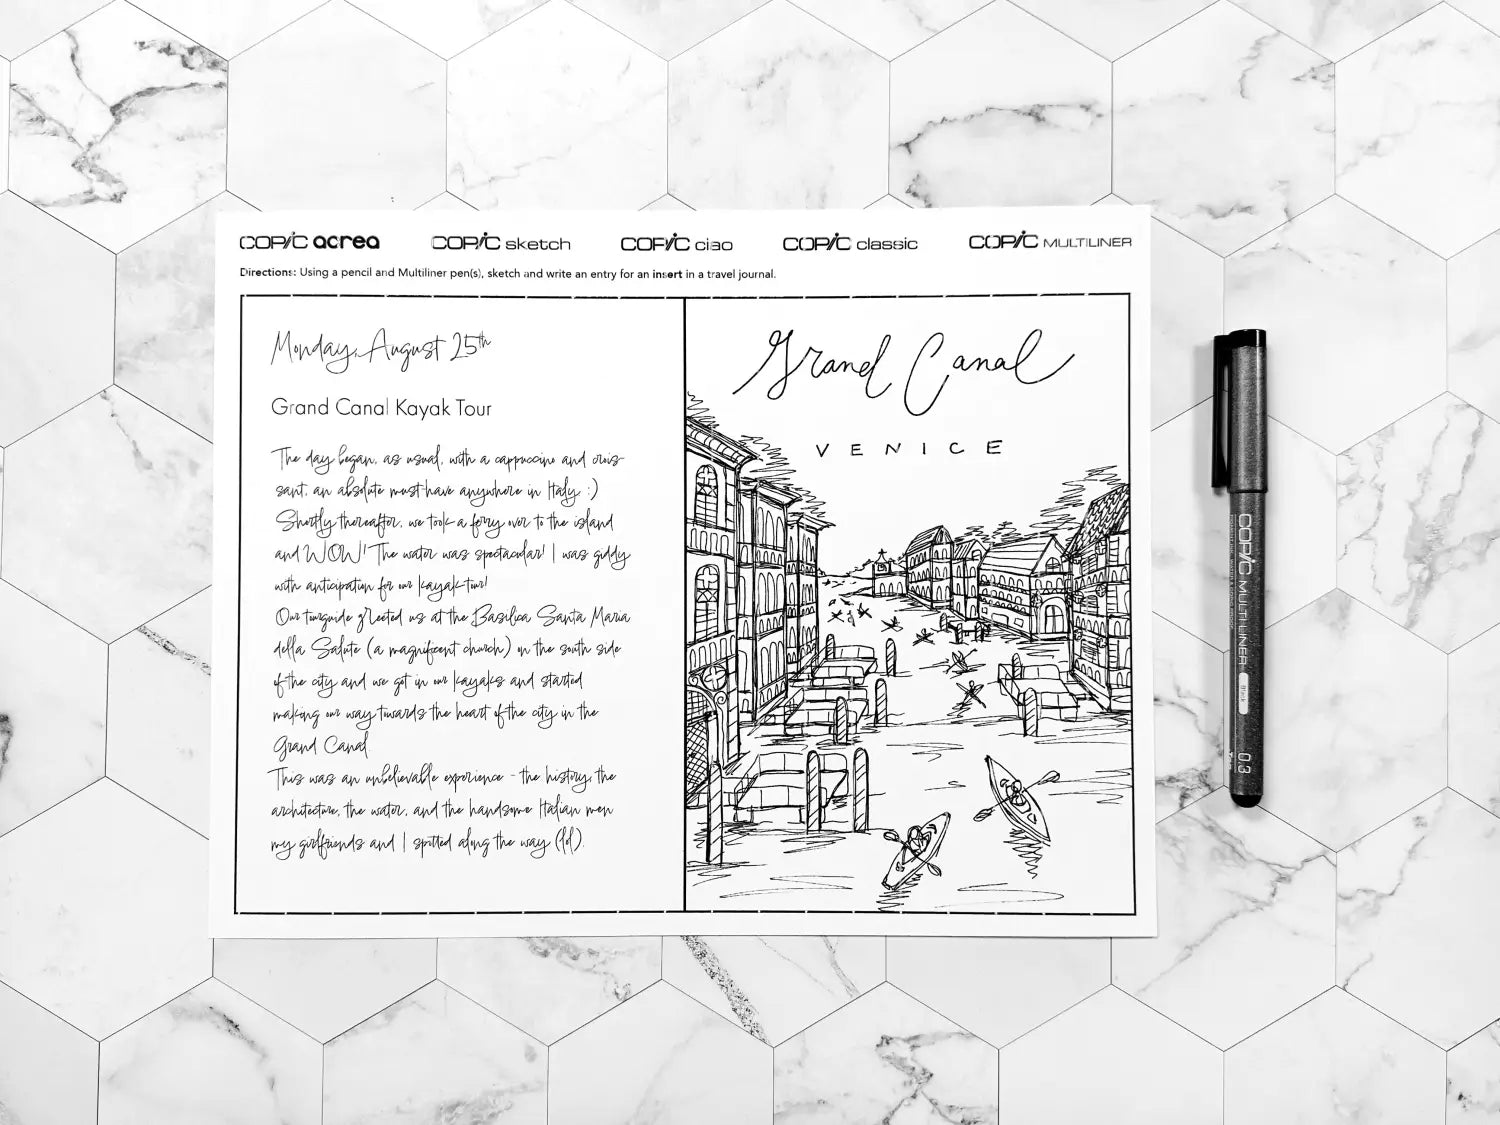 COPIC acrea COPIC sketch COPIC ciao COPIC classic COPIC MULTILINER
Directions: Using a pencil and Multiliner pen(s), sketch and write an entry for an insert in a travel journal.
Monday, August 25th
Grand Canal Kayak Tour
The day began, as usual, with a cappuccino and crois-
sant, an absolute must-have anywhere in Italy :)
Shortly thereafter, we took a ferry over to the island
and WOW! The water was spectacular! I was giddy
with anticipation for our kayak-tour!
Our tourguide greeted us at the Basilica Santa Maria
della Salute (a magnificent church) on the south side
of the city and we got in our kayaks and started
making our way towards the heart of the city in the
Grand Canal.
This was an unbelievable experience - the history, the
architecture, the water, and the handsome Italian men
my girlfriends and I spotted along the way (lol).
Grand Canal
VENICE
COPIC MULTILINER
Black
03